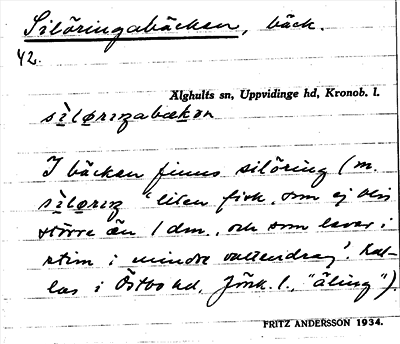 Silöringabäcken, bäck.
42.
Älghults sn, Uppvidinge hd, Kronob. l.
sìlørıŋabækən
I bäcken finns silöring (m.
sìlørıŋ "liten fisk, som ej blir
större än 1 dm., och som lever i
stim i mindre vattendrag". Kal-
las i Östbo hd, Jönk. l., "äling").
FRITZ ANDERSSON 1934.